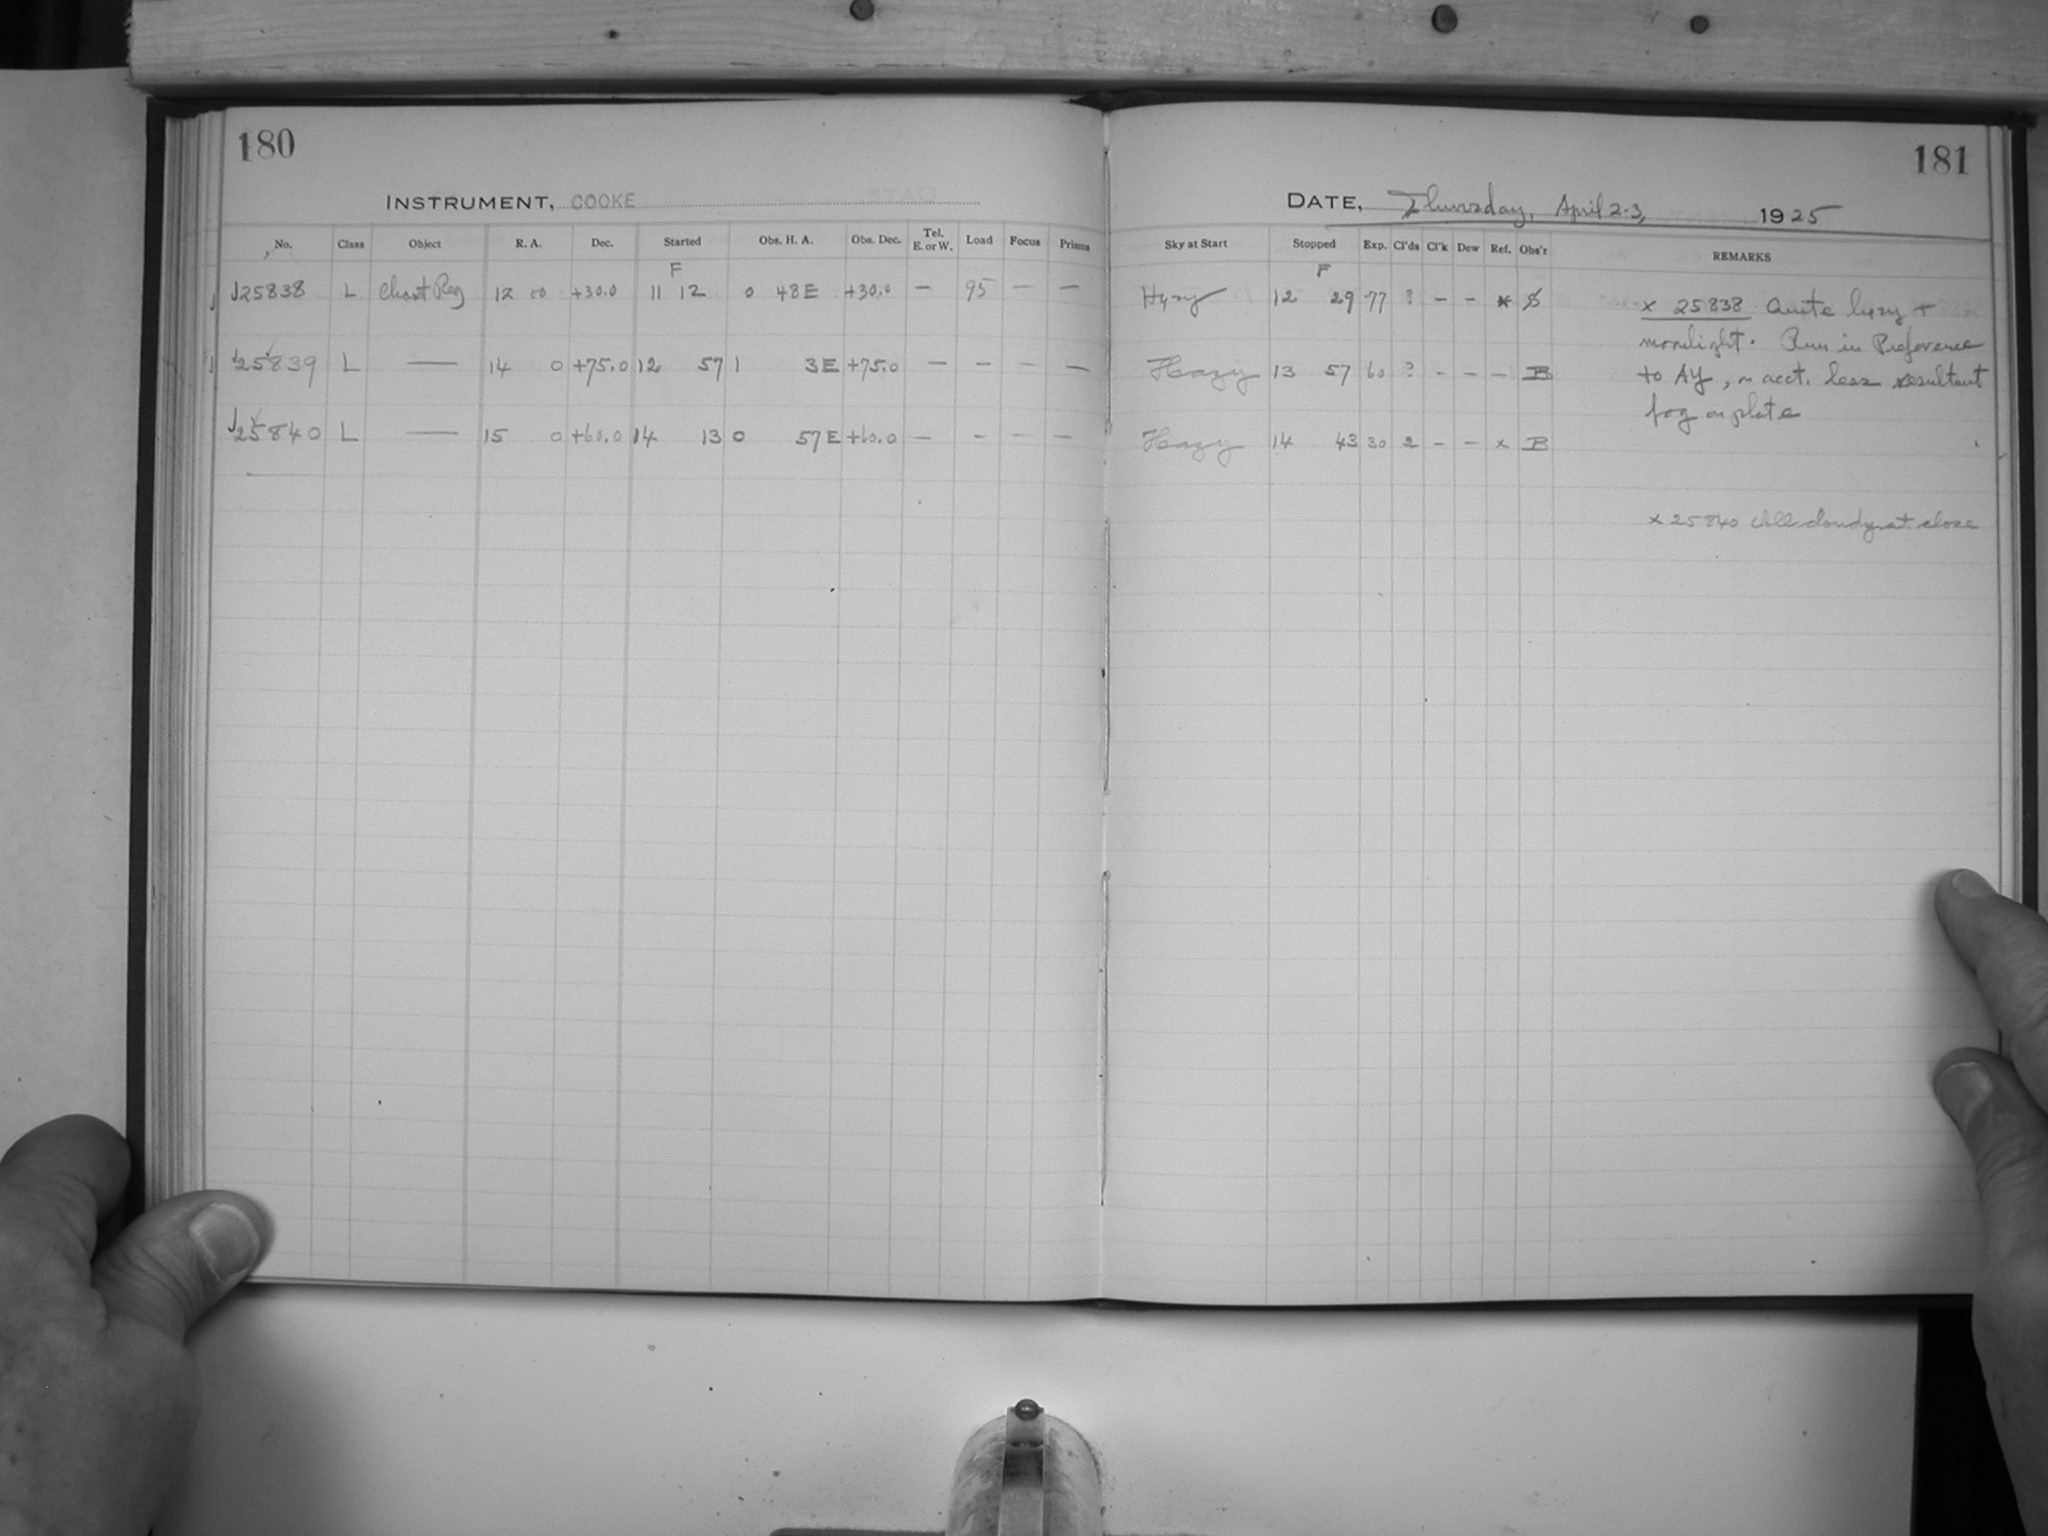 180
INSTRUMENT, COOKE
No. Class Object R. A. Dec. Started Obs. H. A. Obs. Dec. Tel. E. or W. Load Focus Prisms
F
25838 L Chart Reg 12 00 +30.0 11 12 0 48 E +30.0 — 95 — —
25839 L — 14 0 +75.0 12 57 1 3 E +75.0 — — — —
25840 L — 15 0 +60.0 14 13 0 57 E +60.0 — - - —
181
DATE, Thursday, April 2-3, 1925
Sky at Start Stopped Exp. Cl'ds Cl'k Dew Ref. Obs'r REMARKS
F
Hazy 12 29 77 ? - - * S
Hazy 13 57 60 ? - - - B
Hazy 14 43 30 2 - - x B
x 25838 Quite hazy +
moonlight. Run in Preference
to AY, on acct. less resultant
fog on plate
x 25840 All cloudy at close